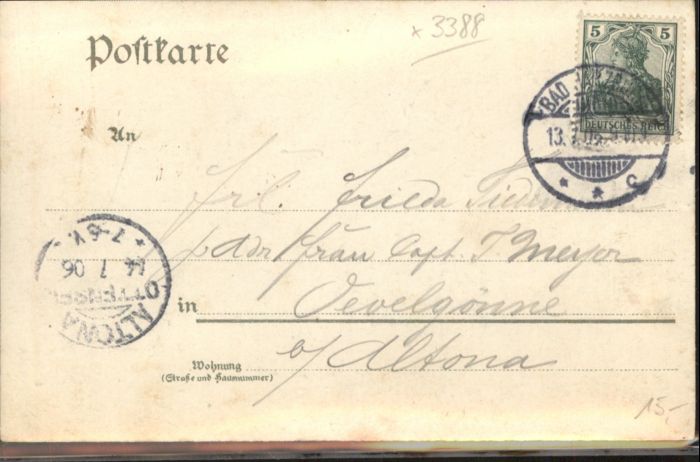 x 3388
Postkarte
5 5
DEUTSCHES REICH
BAD
13. 7. 06
* * c
An
Frl. Frieda
p. Adr. Frau Capt. J. Meyer
in Oevelgönne
b/Altona
Wohnung
(Straße und Hausnummer)
* 7-8 V. *
14 7 06
OTTENSEN
ALTONA
15.-